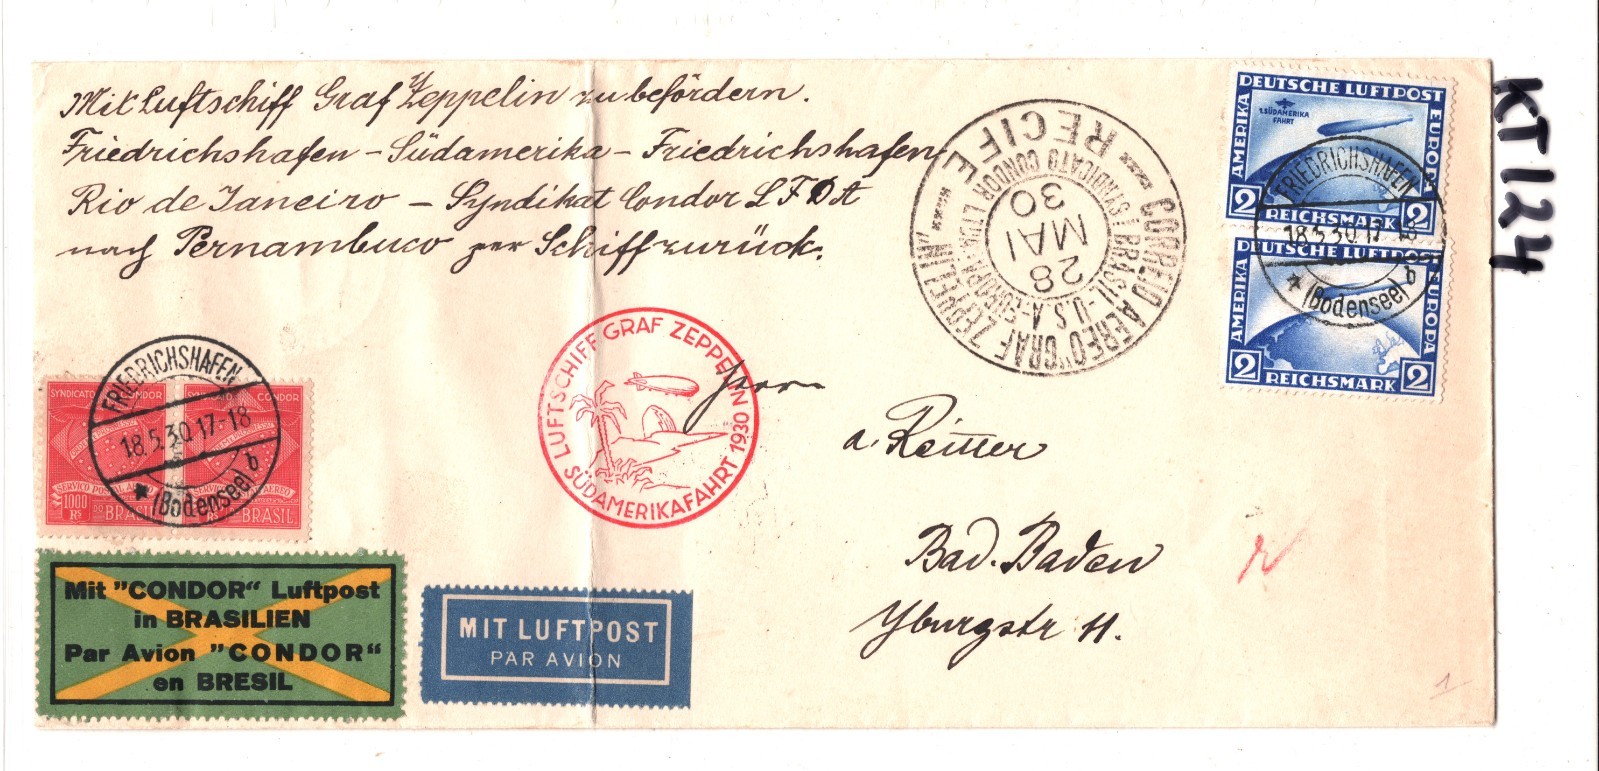 Mit Luftschiff Graf Zeppelin zu befördern.
Friedrichshafen – Südamerika – Friedrichshafen
Rio de Janeiro – Syndikat Condor LFDA
nach Pernambuco per Schiff zurück.
KT124
CORREIO AEREO "GRAF ZEPPELIN"
RECIFE
BRASIL-U.S.A-EUROPA
SYNDICATO CONDOR LTDA.
28
MAI
30
DEUTSCHE LUFTPOST
AMERIKA
EUROPA
1. SÜDAMERIKA
FAHRT
2 REICHSMARK 2
DEUTSCHE LUFTPOST
AMERIKA
EUROPA
2 REICHSMARK 2
FRIEDRICHSHAFEN
18.5.30.17-18
* (Bodensee) b
LUFTSCHIFF GRAF ZEPPELIN
SÜDAMERIKAFAHRT 1930
Herrn
a. Reimer
Bad. Baden
Yburgstr 11.
FRIEDRICHSHAFEN
18.5.30.17-18
* (Bodensee) b
SYNDICATO CONDOR
SERVIÇO POSTAL AEREO
1000
RS
DO BRASIL
SYNDICATO CONDOR
SERVIÇO AEREO
BRASIL
Mit "CONDOR" Luftpost
in BRASILIEN
Par Avion "CONDOR"
en BRESIL
MIT LUFTPOST
PAR AVION
1